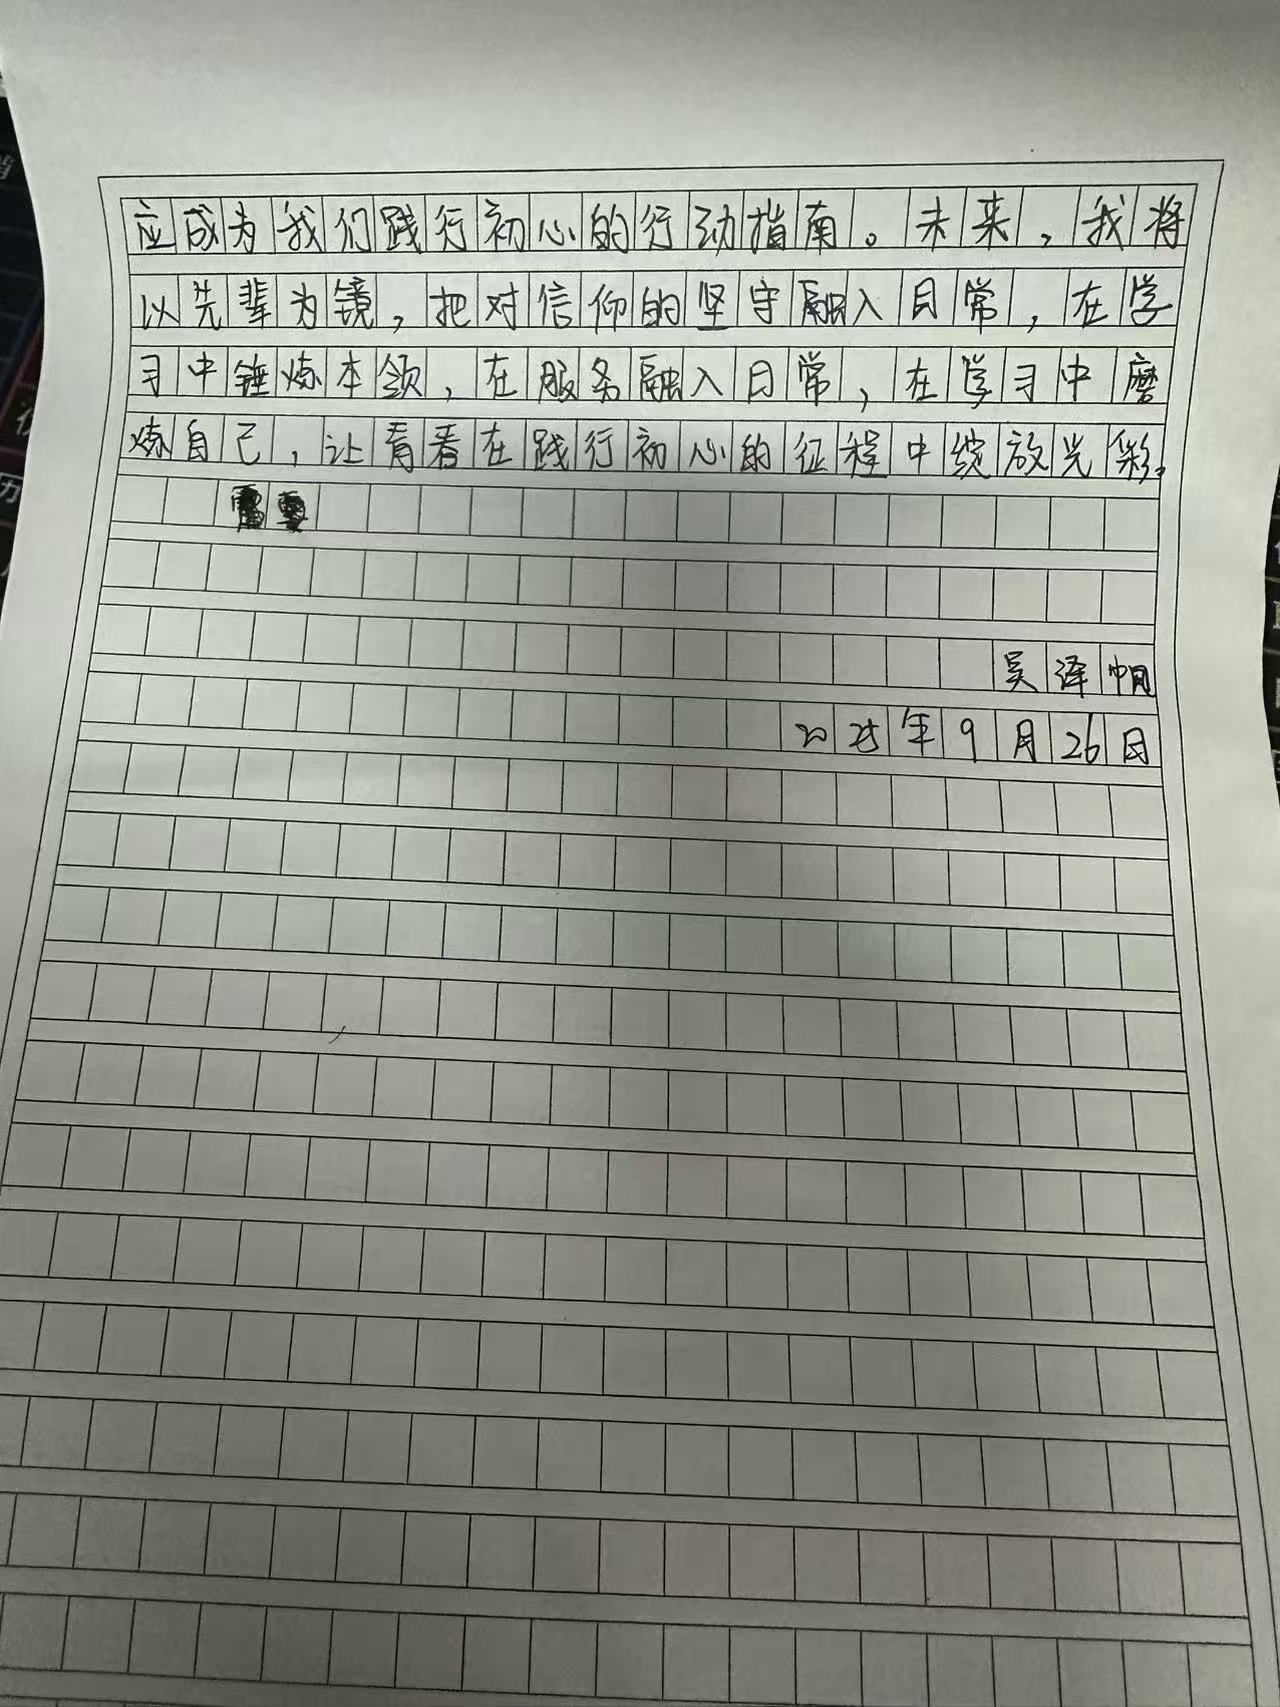 应成为我们践行初心的行动指南。未来，我将
以先辈为镜，把对信仰的坚守融入日常，在学
习中锤炼本领，在服务融入日常，在学习中磨
炼自己，让青春在践行初心的征程中绽放光彩。
吴泽帼
2025年9月26日